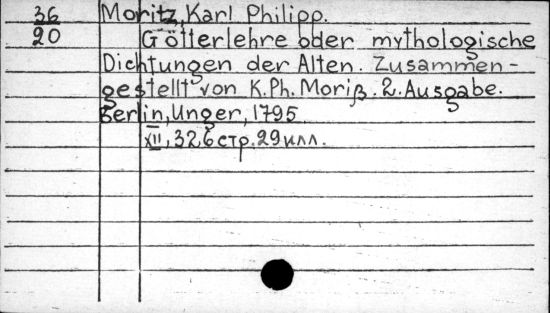 36 Moritz, Karl Philipp.
20 Götterlehre oder mythologische
Dichtungen der Alten. Zusammen-
gestellt von K.Ph. Moriß. 2. Ausgabe.
Berlin, Unger, 1795
XII, 326 стр. 29 илл.